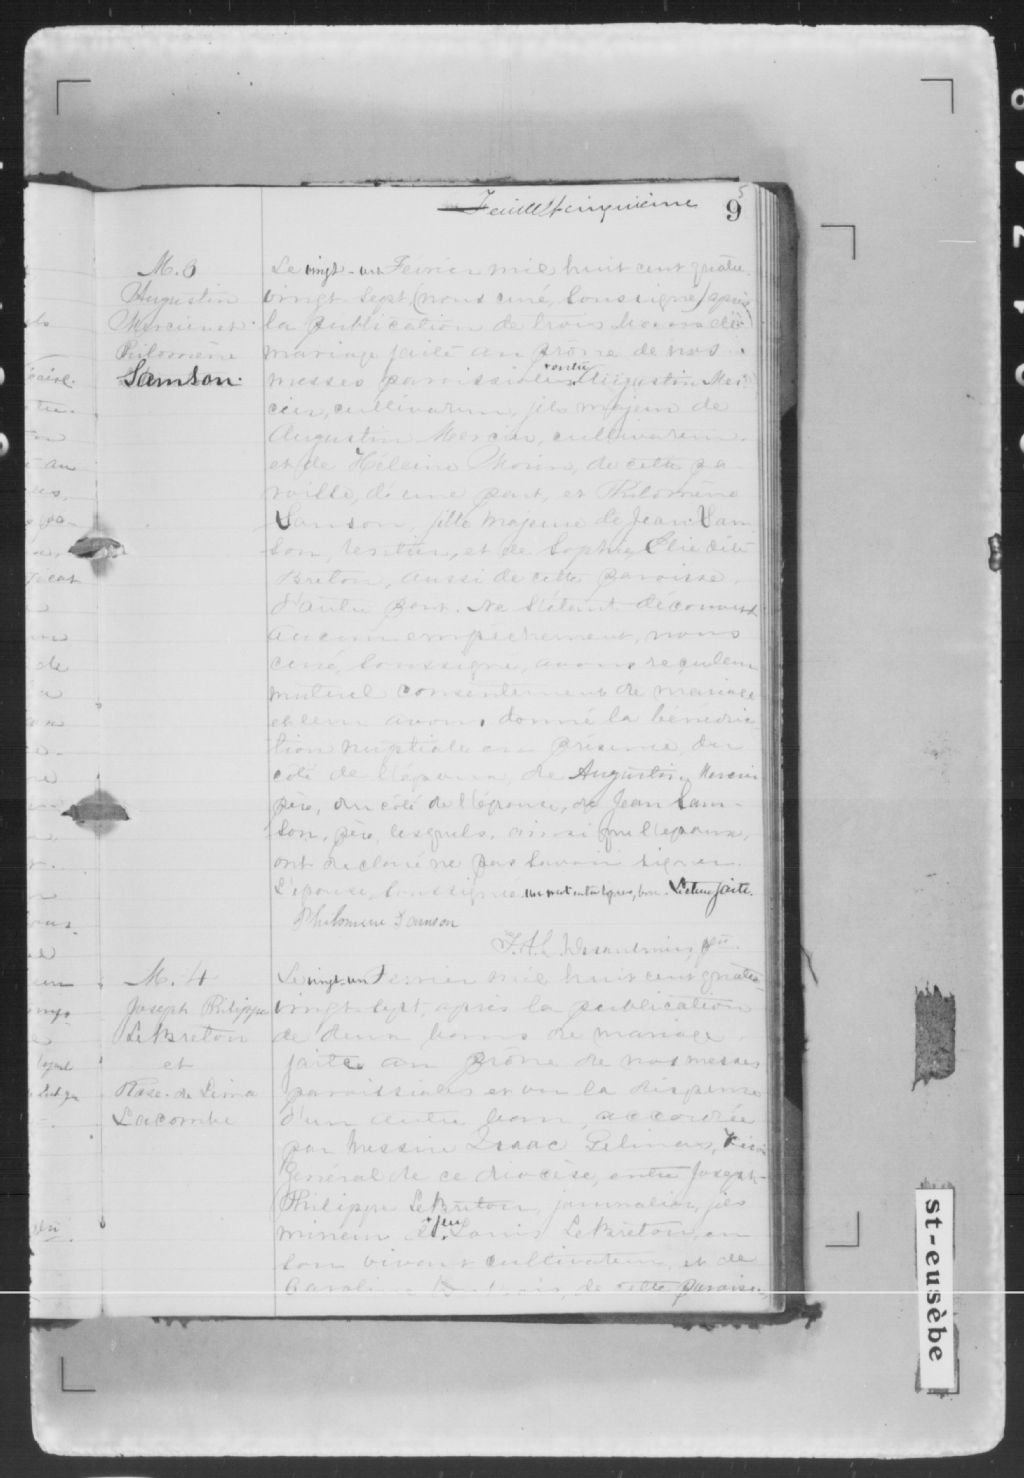 Feuillet cinquième
5
9
M. 3
Augustin
Mercier et
Philomène
Samson.
Le vingt-un Février mil huit cent quatre-
vingt-sept (nous curé, soussigné) après
la publication de trois bans de
mariage faite au prône de nos
messes paroissiales entre Augustin Mer
cier, cultivateur, fils majeur de
Augustin Mercier, cultivateur
et de Héleine Morin, de cette pa
roisse, d'une part, et Philomène
Samson, fille majeure de Jean Sam
son, rentier, et de Sophie Elie dite
Breton, aussi de cette paroisse,
d'autre part. Ne s'étant découvert
aucun empêchement, nous
curé, soussigné, avons reçu leur
mutuel consentement de mariage
et leur avons donné la bénédic
tion nuptiale en présence, du
côté de l'époux, de Augustin Mercier
père, du côté de l'épouse, de Jean Sam-
son, père, lesquels, ainsi que l'époux,
ont déclaré ne pas savoir signer.
L'épouse, soussignée. Lecture faite.
Philomene Samson
Ptre.
M. 4
Joseph Philippe
LeBreton
et
Rose-de-Lima
Lacombe
Le vingt-un Fevrier mil huit cent quatre-
vingt-sept, après la publication
de deux bans de mariage
faite au prône de nos messes
paroissiales et vu la dispense
d'un autre ban, accordée
par Messire Isaac Gelinas, Vicaire
Général de ce diocèse, entre Joseph-
Philippe LeBreton, journalier, fils
mineur de feu Louis LeBreton, en
son vivant cultivateur, et de
de cette paroisse,
st-eusèbe